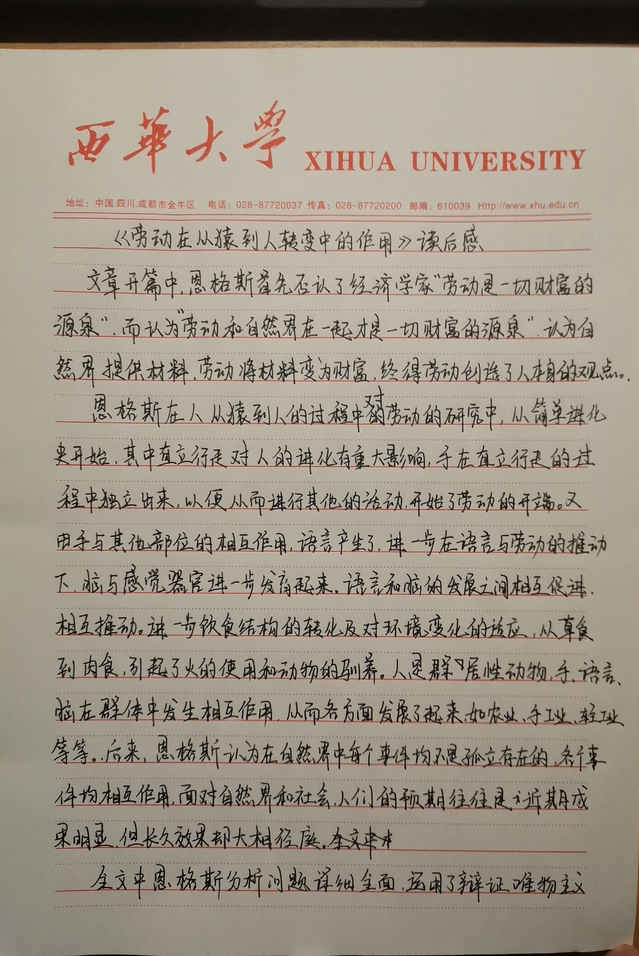 西華大學 XIHUA UNIVERSITY
地址：中国.四川.成都市金牛区 电话：028-87720037 传真：028-87720200 邮编：610039 Http://www.xhu.edu.cn
《劳动在从猿到人转变中的作用》读后感
文章开篇中，恩格斯首先否认了经济学家“劳动是一切财富的
源泉”，而认为“劳动和自然界在一起才是一切财富的源泉”，认为自
然界提供材料，劳动将材料变为财富，终得劳动创造了人本身的观点。
恩格斯在人从猿到人的过程中对的劳动的研究中，从简单进化
史开始，其中直立行走对人的进化有重大影响，手在直立行走的过
程中独立出来，以便从而进行其他的活动，开始了劳动的开端。又
由手与其他部位的相互作用，语言产生了，进一步在语言与劳动的推动
下，脑与感觉器官进一步发育起来。语言和脑的发展之间相互促进，
相互推动。进一步饮食结构的转化及对环境变化的适应，从草食
到肉食，引起了火的使用和动物的驯养。人是群居性动物，手、语言、
脑在群体中发生相互作用，从而各方面发展了起来，如农业、手工业、轻工业
等等。后来，恩格斯认为在自然界中每个事件均不是孤立存在的，各个事
件均相互作用，面对自然界和社会，人们的预期往往是近期成
果明显，但长久效果却大相径庭。全文
全文中恩格斯分析问题详细全面，运用了辩证唯物主义